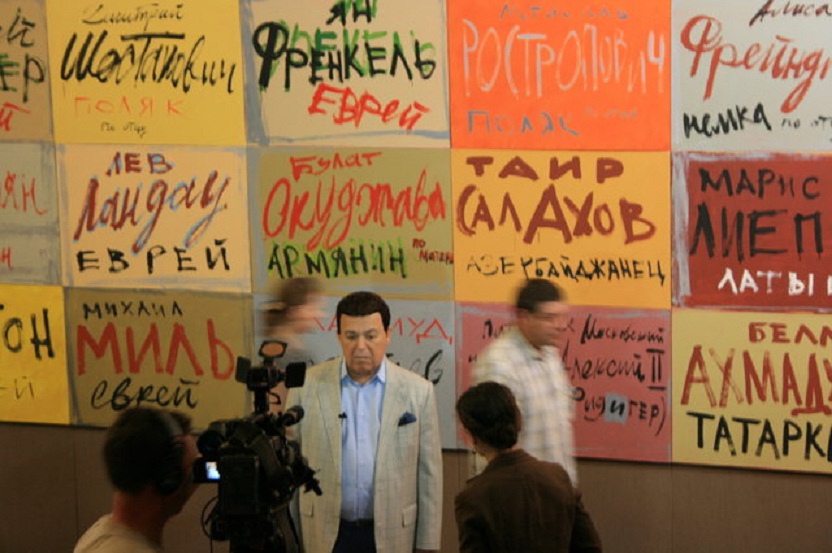 Дмитрий
Шостакович
ПОЛЯК
по отцу
ЯН
ФРЕНКЕЛЬ
ЕВРЕЙ
РОСТРОПОВИЧ
ПОЛЯК
Алиса
Фрейнд
немка по отц
ЛЕВ
Ландау
ЕВРЕЙ
БУЛАТ
Окуджава
АРМЯНИН по матери
ТАИР
САЛАХОВ
АЗЕРБАЙДЖАНЕЦ
МАРИС
ЛИЕП
ЛАТЫ
ОН
МИХАИЛ
МИЛЬ
еврей
Московский
Алексий II
(Ридигер)
БЕЛЛ
АХМАДУ
ТАТАРК